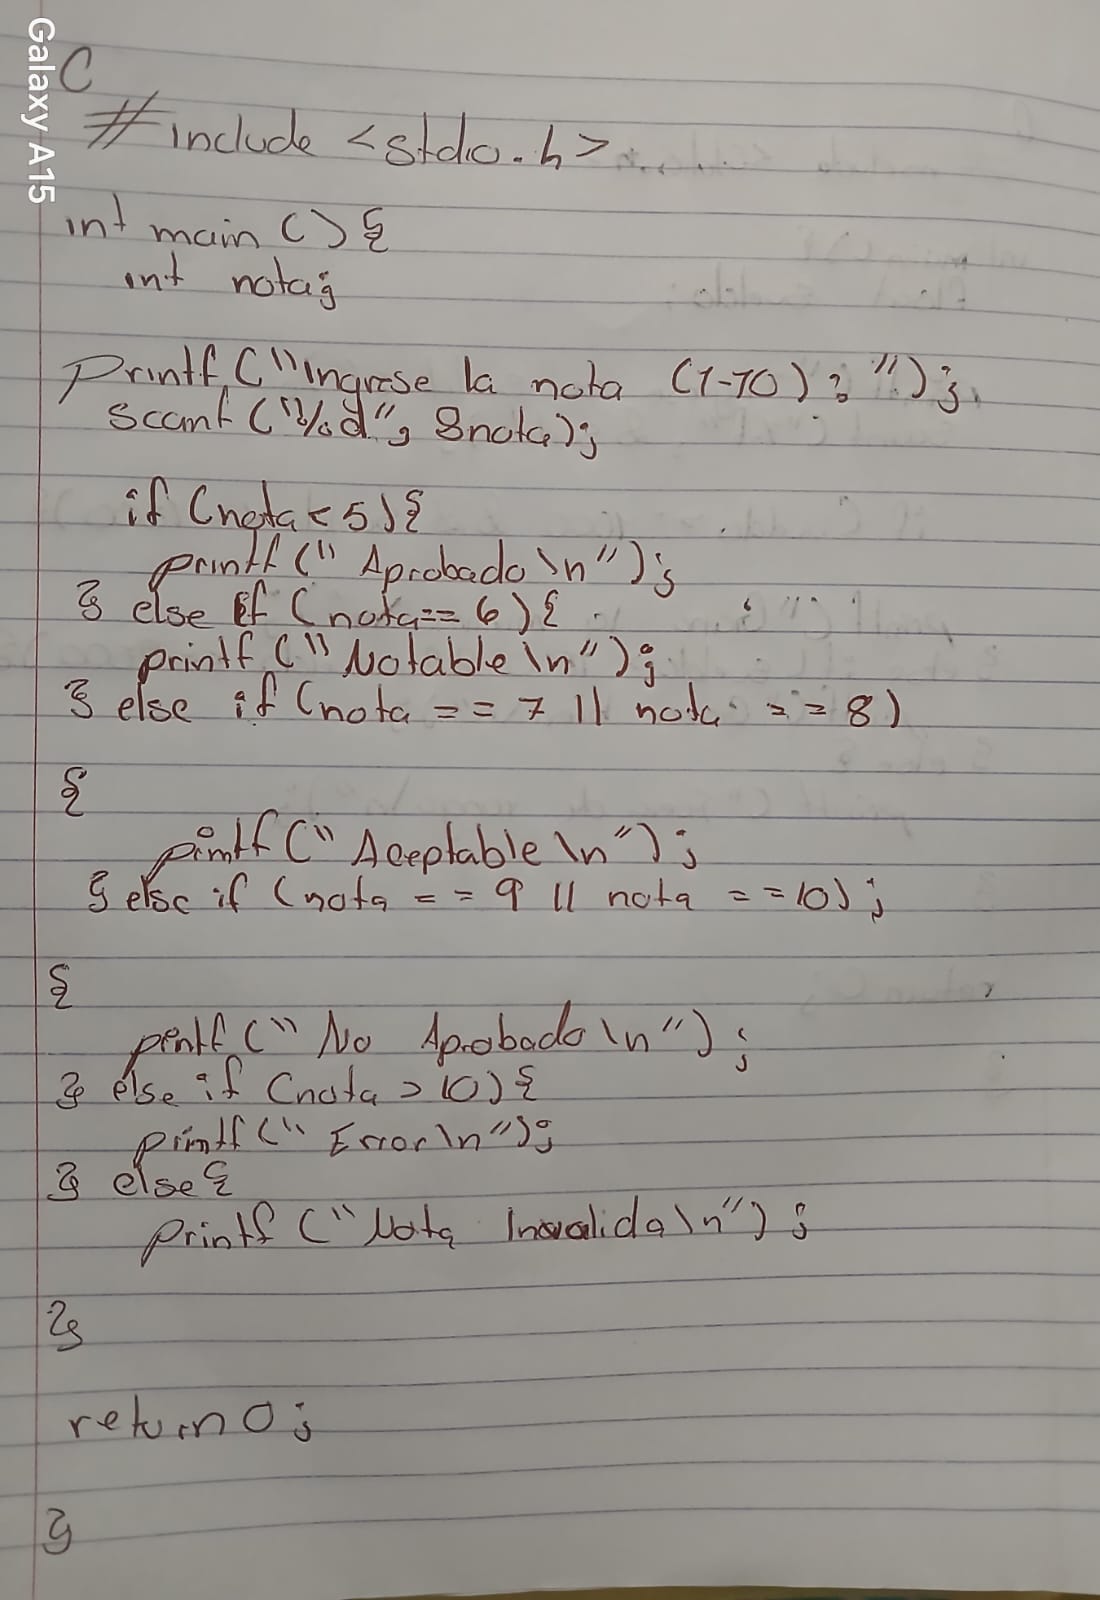 Galaxy A15
C
#include <stdio.h>
int main () {
int nota;
printf ("Ingrese la nota (1-10) : ");
scanf ("%d", &nota);
if (nota < 5) {
printf (" Aprobado \n");
} else if (nota == 6) {
printf (" Notable \n");
} else if (nota == 7 || nota == 8)
{
printf (" Aceptable \n");
} else if (nota == 9 || nota == 10);
{
printf (" No Aprobado \n");
} else if (nota > 10) {
printf (" Error \n");
} else {
printf (" Nota Invalida \n");
}
return 0;
}